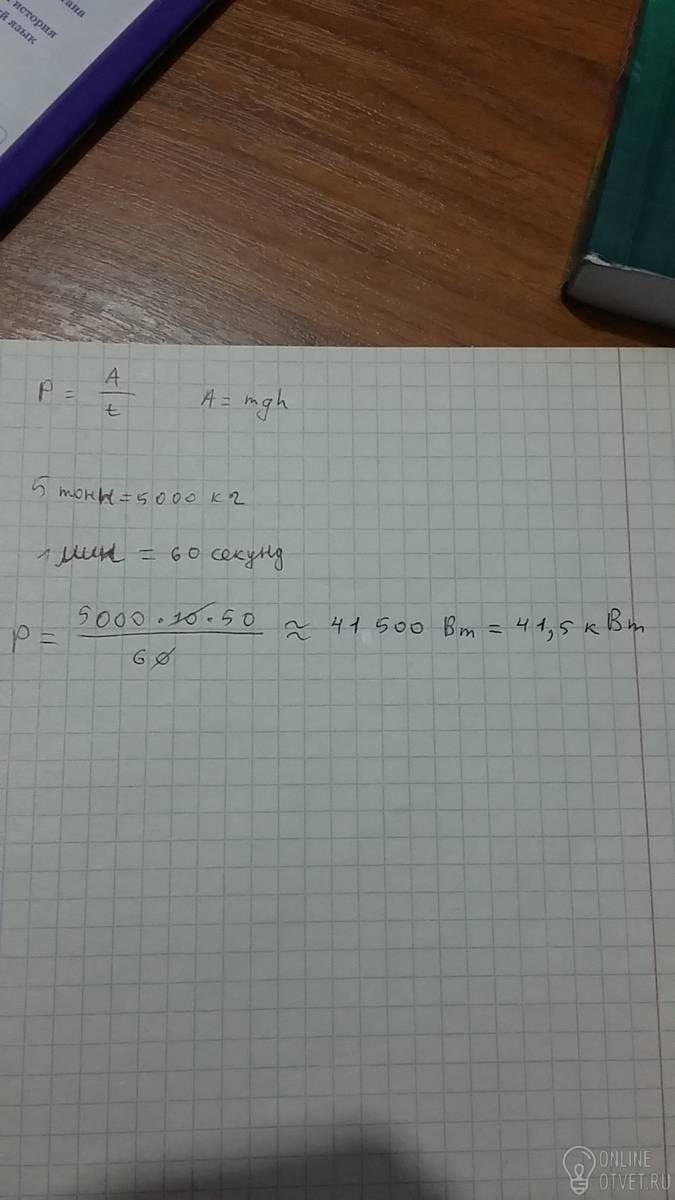 история
язык
P = A/t   A = mgh
5 тонн = 5000 кг
1 мин = 60 секунд
P = 5000 · 10 · 50 / 60 ≈ 41 500 Вт = 41,5 кВт
ONLINE
OTVET.RU